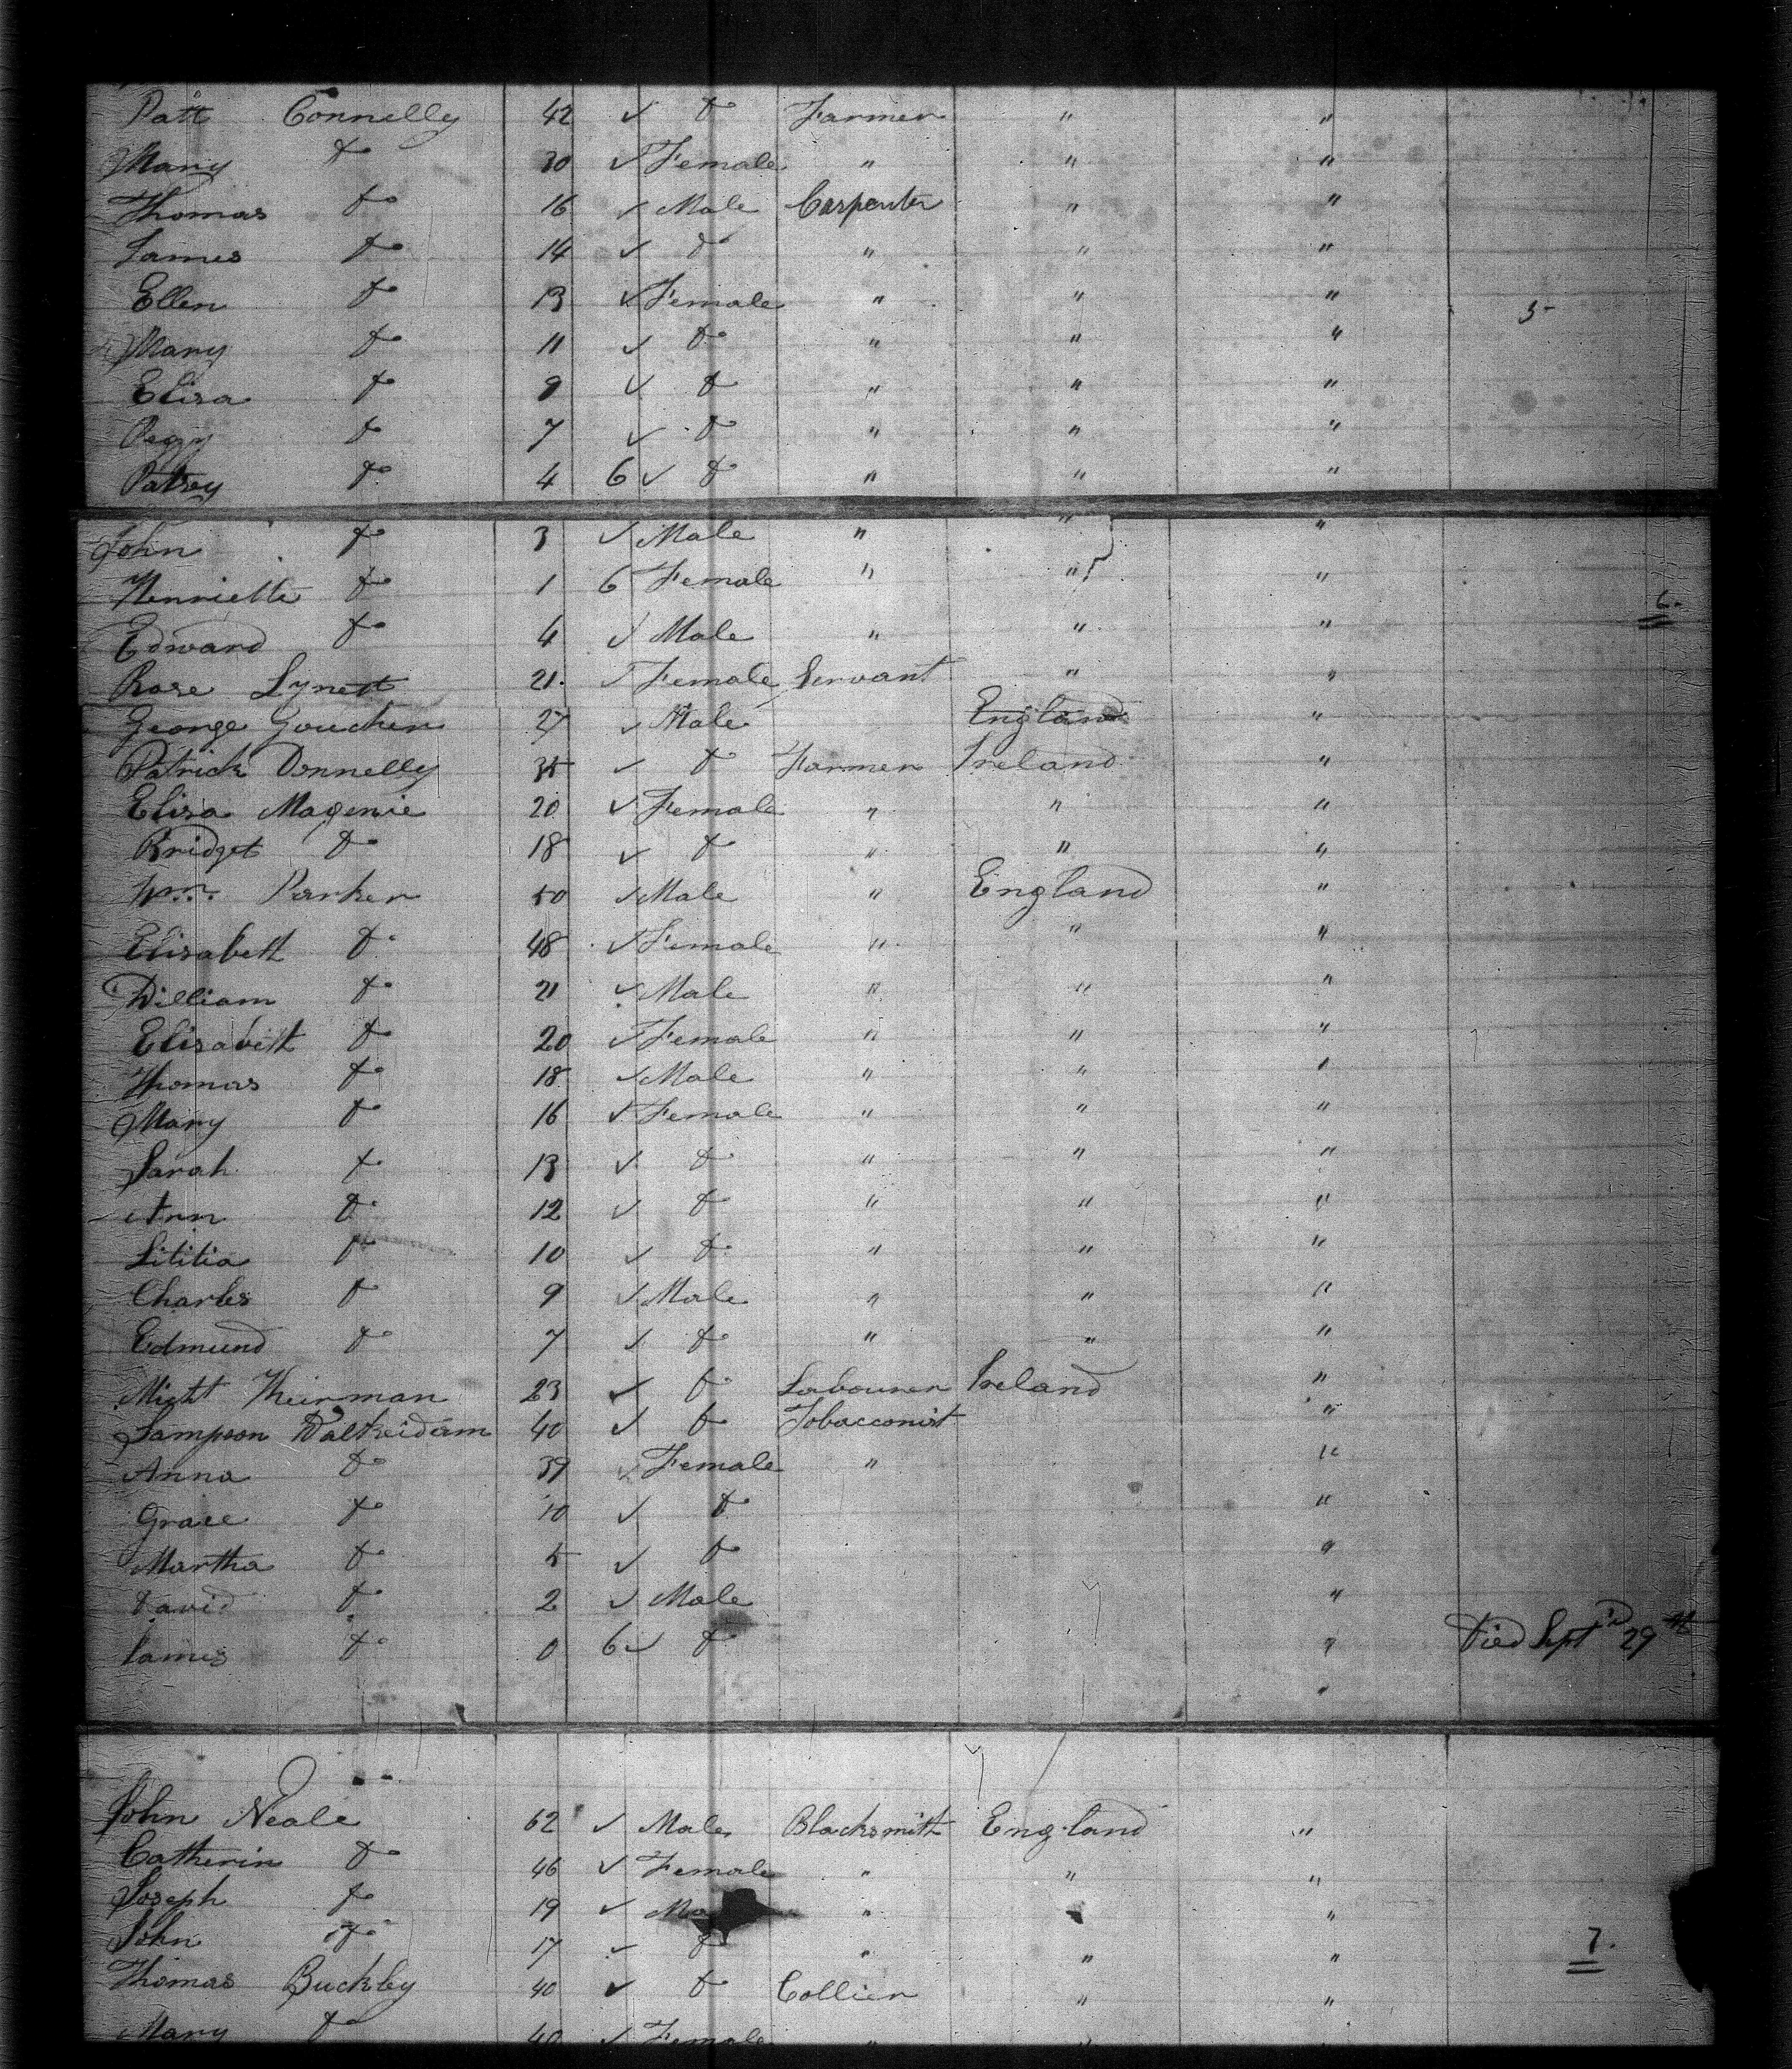 Patt Connelly 42 ✓ do Farmer " "
Mary do 30 ✓ Female " " "
Thomas do 16 ✓ Male Carpenter " "
James do 14 ✓ do " " "
Ellen do 13 ✓ Female " " " 5
Mary do 11 ✓ do " " "
Elisa do 9 ✓ do " " "
Peggy do 7 ✓ do " " "
Patsey do 4 6 ✓ do " " "
John do 3 ✓ Male " " "
Henriette do 1 6 Female " " "
6.
Edward do 4 ✓ Male " " "
Rose Lynett 21. ✓ Female Servant " "
George Goucher 27 ✓ Male England "
Patrick Donnelly 35 ✓ do Farmer Ireland "
Elisa Magenie 20 ✓ Female " " "
Bridget do 18 ✓ do " " "
Wm. Parker 50 ✓ Male " England "
Elisabett do 48 ✓ Female " " "
William do 21 ✓ Male " " "
Elisabett do 20 ✓ Female " " "
Thomas do 18 ✓ Male " " "
Mary do 16 ✓ Female " " "
Sarah do 13 ✓ do " " "
Ann do 12 ✓ do " " "
Lititia do 10 ✓ do " " "
Charles do 9 ✓ Male " " "
Edmund do 7 ✓ do " " "
Michl 23 ✓ do Labourer Ireland "
Sampson 40 ✓ do Tobacconist "
Anna do 39 ✓ Female " "
Grace do 10 ✓ do "
Martha do 5 ✓ do "
David do 2 ✓ Male "
James do 0 6 ✓ do " Died Sept 29th
"
John Neale 62 ✓ Male Blacksmith England "
Catherin do 46 ✓ Female " " "
Joseph do 19 ✓ Ma " "
John do 17 ✓ do " " " 7.
Thomas Buckley 40 ✓ do Collier " "
Mary do 40 ✓ Female " "